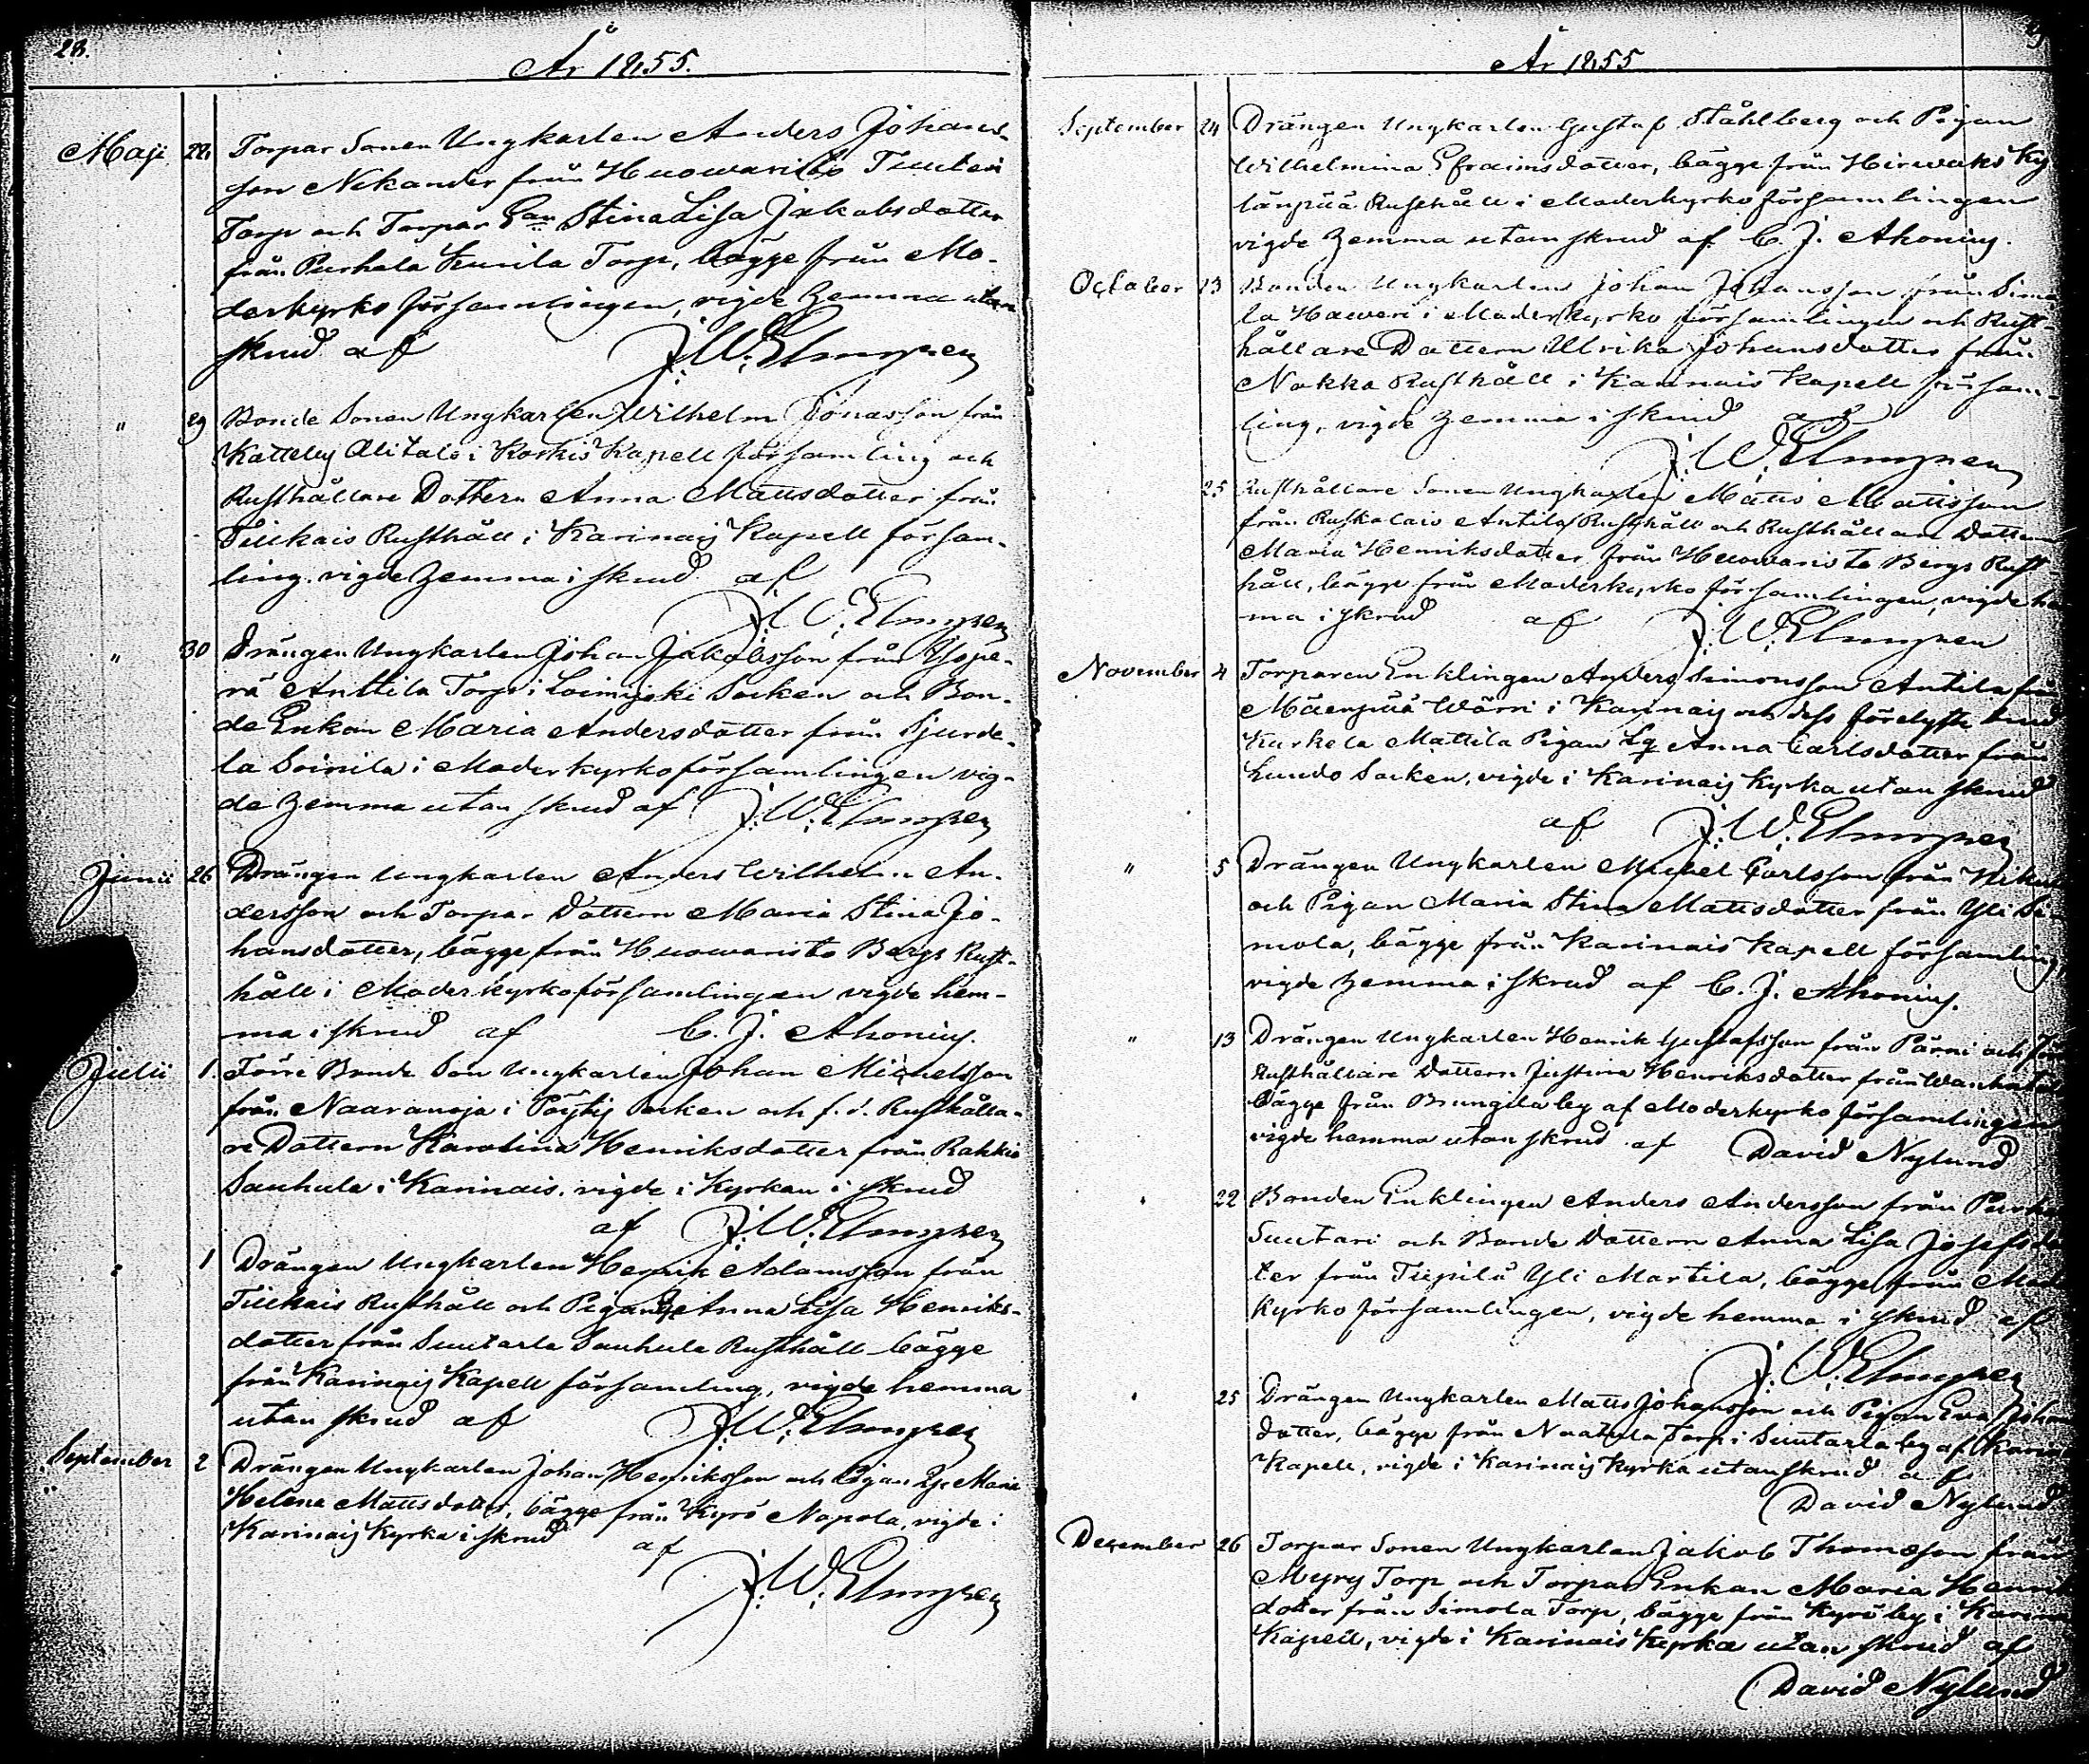 28.
År 1855.
Maji 22. Torpar Sonen Ungkarlen Anders Johans-
son Nikander från Huowaristo Tuuteri
Torp och Torpar Enkan Stina Lisa Jakobsdotter
från Purhala Torp, bägge från Mo-
derkyrko församlingen, vigde hemma utan
skrud af J. W. Elmgren
" 29 Bonde Sonen Ungkarlen Wilhelm Jonasson från
Katteby Alitalo i Koskis Kapell församling och
Rusthållare Dottern Anna Mattsdotter från
Tiickais Rusthåll i Karinais Kapell försam-
ling. vigde hemma i skrud af
J. W. Elmgren
" 30 Drängen Ungkarlen Johan Jakobsson från Ylope-
rä Anttila Torp i Loimijoki Socken och Bon-
de Enkan Maria Andersdotter från Juvde-
la Soinila i Moderkyrkoförsamlingen vig-
de hemma utan skrud af J. W. Elmgren
Junii 26 Drängen Ungkarlen Anders Wilhelm An-
dersson och Torpar Dottern Maria Stina Jo-
hansdotter, bägge från Huowaristo Bergs Rust-
håll i Moderkyrkoförsamlingen vigde hem-
ma i skrud af C. J. Ahonius.
Julii 1. Förre Bonde Son Ungkarlen Johan Michelsson
från Naaranoja i Pöytis Socken och f. d. Rusthålla-
re Dottern Karolina Henriksdotter från Rahkio
Sauhula i Karinais. vigde i Kyrkan i skrud
af J. W. Elmgren
1 Drängen Ungkarlen Henrik Adamsson från
Tiickais Rusthåll och Pigan Anna Lisa Henriks-
dotter från Suutarla Sauhula Rusthåll bägge
från Karinais Kapell församling, vigde hemma
utan skrud af J. W. Elmgren
September 2 Drängen Ungkarlen Johan Henriksson och Pigan Maria
Helena Mattsdotter, bägge från Kyrö Napola, vigde i
Karinais Kyrka i skrud af
J. W. Elmgren
År 1855
September 24 Drängen Ungkarlen Gustaf Ståhlberg och Pigan
Wilhelmina Efraimsdotter, bägge från Hirwiks Ky
länpää Rusthåll i Moderkyrko församlingen
vigde hemma utan skrud af C. J. Ahonius.
October 13 Bonden Ungkarlen Johan Johansson från Simo
la Haweri i Moderkyrko församlingen och Rust-
hållare Dottern Ulrika Johansdotter från
Nokka Rusthåll i Karinais Kapell försam-
ling, vigde hemma i skrud af
J. W. Elmgren
25 Rusthållare Sonen Ungkarlen Matts Mattsson
från Antila Rusthåll och Rusthållare Dottern
Maria Henriksdotter från Huowaristo Bergs Rust
håll, bägge från Moderkyrko församlingen, vigde hem
ma i skrud af J. W. Elmgren
November 4 Torparen Enklingen Anders Simonsson Antila från
Mäenpää Wärri i Karinais och dess förelyste brud
Kurkela Mattila Pigan Anna Carlsdotter från
Lundo Socken, vigde i Karinais Kyrka utan skrud
af J. W. Elmgren
" 5 Drängen Ungkarlen Michel Carlsson från
och Pigan Maria Stina Mattsdotter från Yli Si
mola, bägge från Karinais Kapell församling,
vigde hemma i skrud af C. J. Ahonius.
" 13 Drängen Ungkarlen Henrik Gustafsson från Pärni och
Rusthållare Dottern Justina Henriksdotter från
bägge från Brungila by af Moderkyrko församlingen
vigde hemma utan skrud af David Nylund
22 Bonden Enklingen Anders Andersson från
Suutari och Bonde Dottern Anna Lisa Josefsdot
ter från Tiipilä Yli Martila, bägge från Moder
Kyrko församlingen, vigde hemma i skrud af
J. W. Elmgren
25 Drängen Ungkarlen Matts Johansson och Pigan Eva Johans
dotter, bägge från Torp i Suutarla by af Karinais
Kapell, vigde i Karinais Kyrka utan skrud af
David Nylund
December 26 Torpar Sonen Ungkarlen Jakob Thomasson från
Myry Torp och Torpar Enkan Maria
dotter från Simola Torp, bägge från Kyrö by i Karinais
Kapell, vigde i Karinais Kyrka utan skrud af
David Nylund